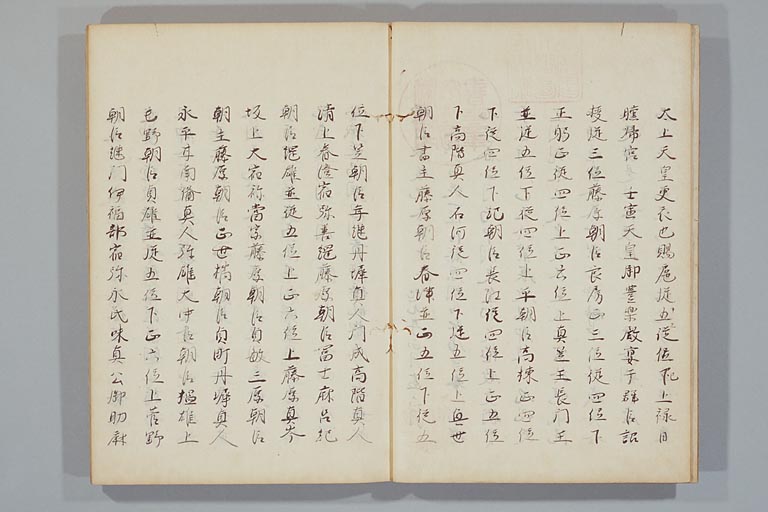 太上天皇更衣也賜扈従五位已上禄日
曛帰宮 壬寅天皇御豊楽殿宴于群臣詔
授従三位藤原朝臣良房正三位従四位下
正躬王従四位上正六位上真笠王長門王
並従五位下従四位上平朝臣高棟正四位
下従四位下紀朝臣長江従四位上正五位
下高階真人石河従四位下従五位上興世
朝臣書主藤原朝臣春津並正五位下従五
位下笠朝臣年継丹墀真人門成高階真人
清上春澄宿祢善縄藤原朝臣富士麻呂紀
朝臣綱雄並従五位上正六位上藤原真岑
坂上大宿祢当宗藤原朝臣貞敏三原朝臣
朝主藤原朝臣正世橘朝臣貞町丹墀真人
永平井南備真人弥雄大中臣朝臣榲雄上
毛野朝臣貞雄並従五位下正六位上菅野
朝臣継門伊福部宿祢永氏味真公御助麻